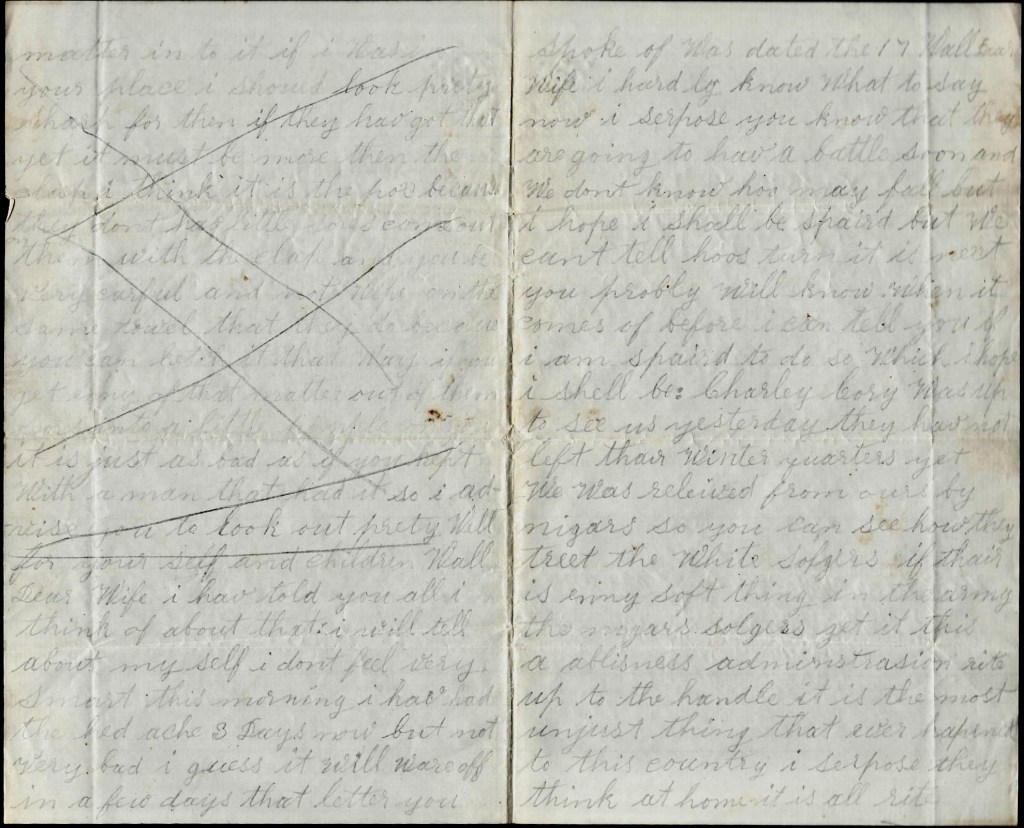 matter in to it if i Was in
your place i should look prety
sharp for then if they hav got that
yet it must be more then the
clap i think it is the pox because
they dont hav little
them with the clap and you be
very carful and not wipe on the
same towel that they do because
you can ketch it that Way if you
get enny of that matter out of them
it is just as bad as if you slept
With a man that had it so i ad-
vise you to look out prety Well
for your self and children Wall
Dear Wife i hav told you all i
think of about that: i will tell
about my self i dont feel very
Smart this morning i hav had
the hed ache 3 Days now but not
very bad i guess it will ware off
in a few days that letter you
spoke of Was dated the 17 Wall Dear
Wife i hard ly know What to say
now i serpose you know that they
are going to hav a battle soon and
We dont know hoo may fall but
i hope i shall be spaird but We
cant tell hoos turn it is next
you probly will know When it
comes of before i can tell you if
i am spaird to do so Which i hope
i shell be: Charley Cory Was up
to see us yesterday they hav not
left thair Winter quarters yet
We Was releived from ours by
nigars so you can see how they
treet the White solgers if thair
is enny soft thing in the army
the nigars solgers get it this
a ablisness adminstrasion rite
up to the handle it is the most
unjust thing that ever hapend
to this country i serpose they
think at home it is all rite